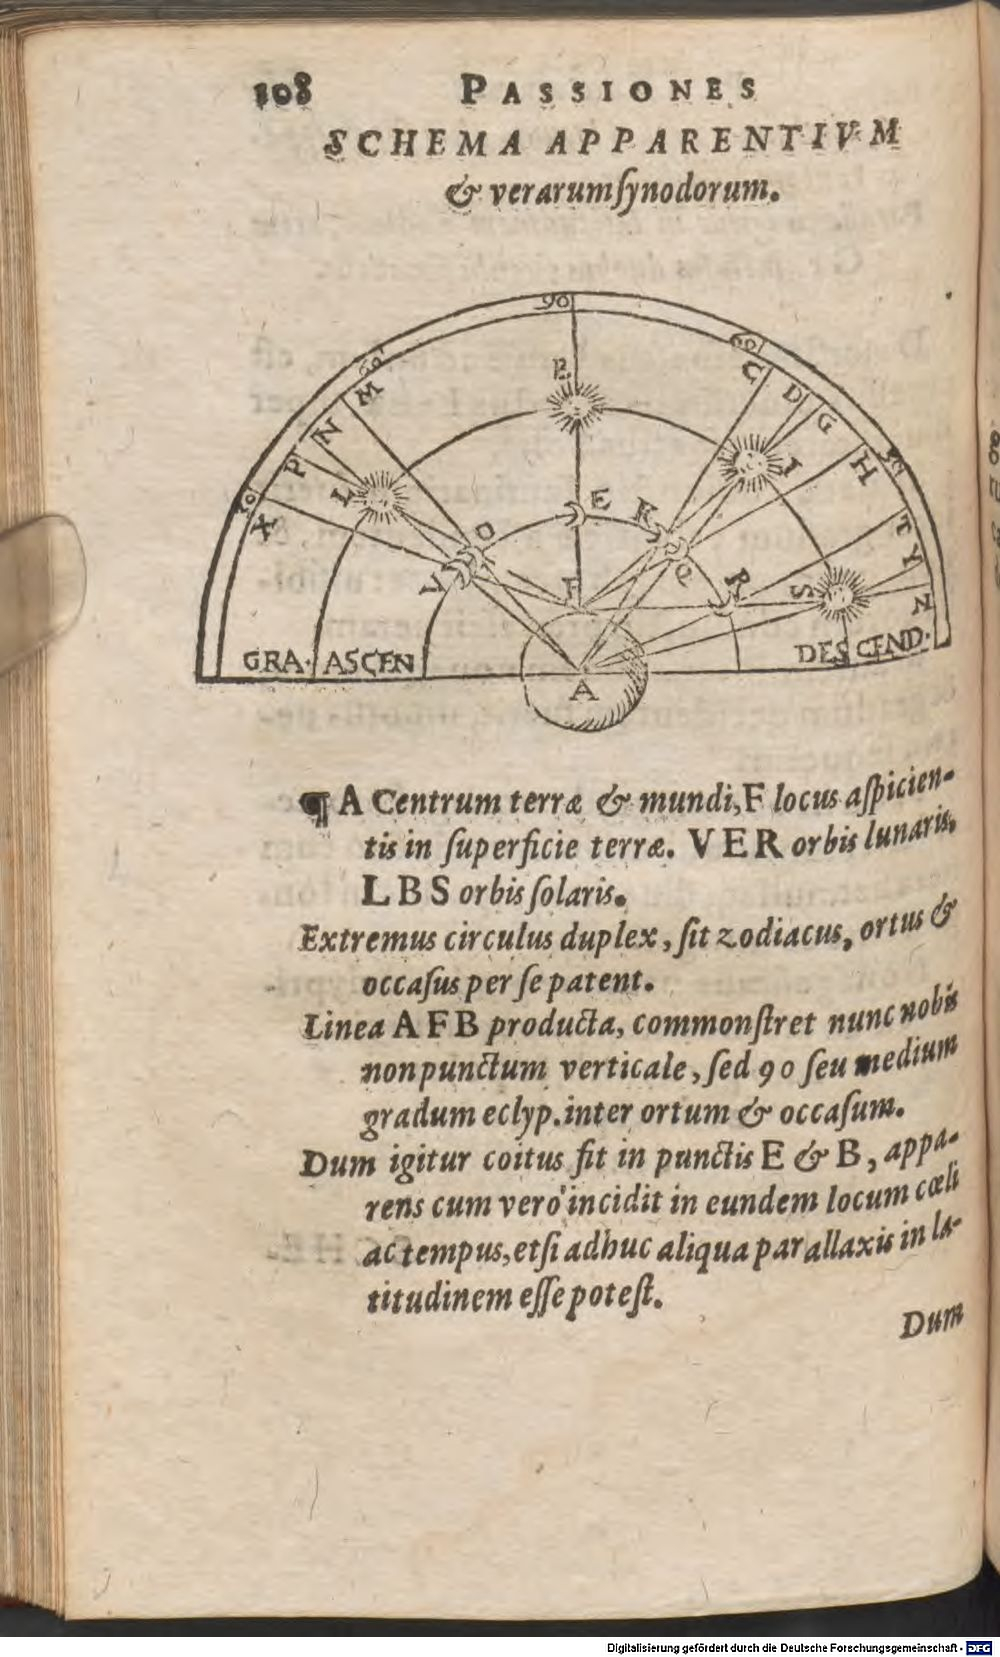 108 PASSIONES
SCHEMA APPARENTIVM
& verarum ſynodorum.
90
60
60
30
30
B
M
N
P
X
L
C
D
G
H
I
T
Y
Z
O
V
E
K
Q
R
S
F
A
GRA. ASCEN
DESCEND.
¶ A Centrum terræ & mundi, F locus aſpicien-
tis in ſuperficie terræ. V E R orbis lunaris.
L B S orbis ſolaris.
Extremus circulus duplex, ſit zodiacus, ortus &
occaſus per ſe patent.
Linea A F B producta, commonſtret nunc nobis
non punctum verticale, ſed 90 ſeu medium
gradum eclyp. inter ortum & occaſum.
Dum igitur coitus fit in punctis E & B, appa-
rens cum vero incidit in eundem locum cœli
ac tempus, etſi adhuc aliqua parallaxis in la-
titudinem eſſe poteſt.
Dum
Digitalisierung gefördert durch die Deutsche Forschungsgemeinschaft - DFG